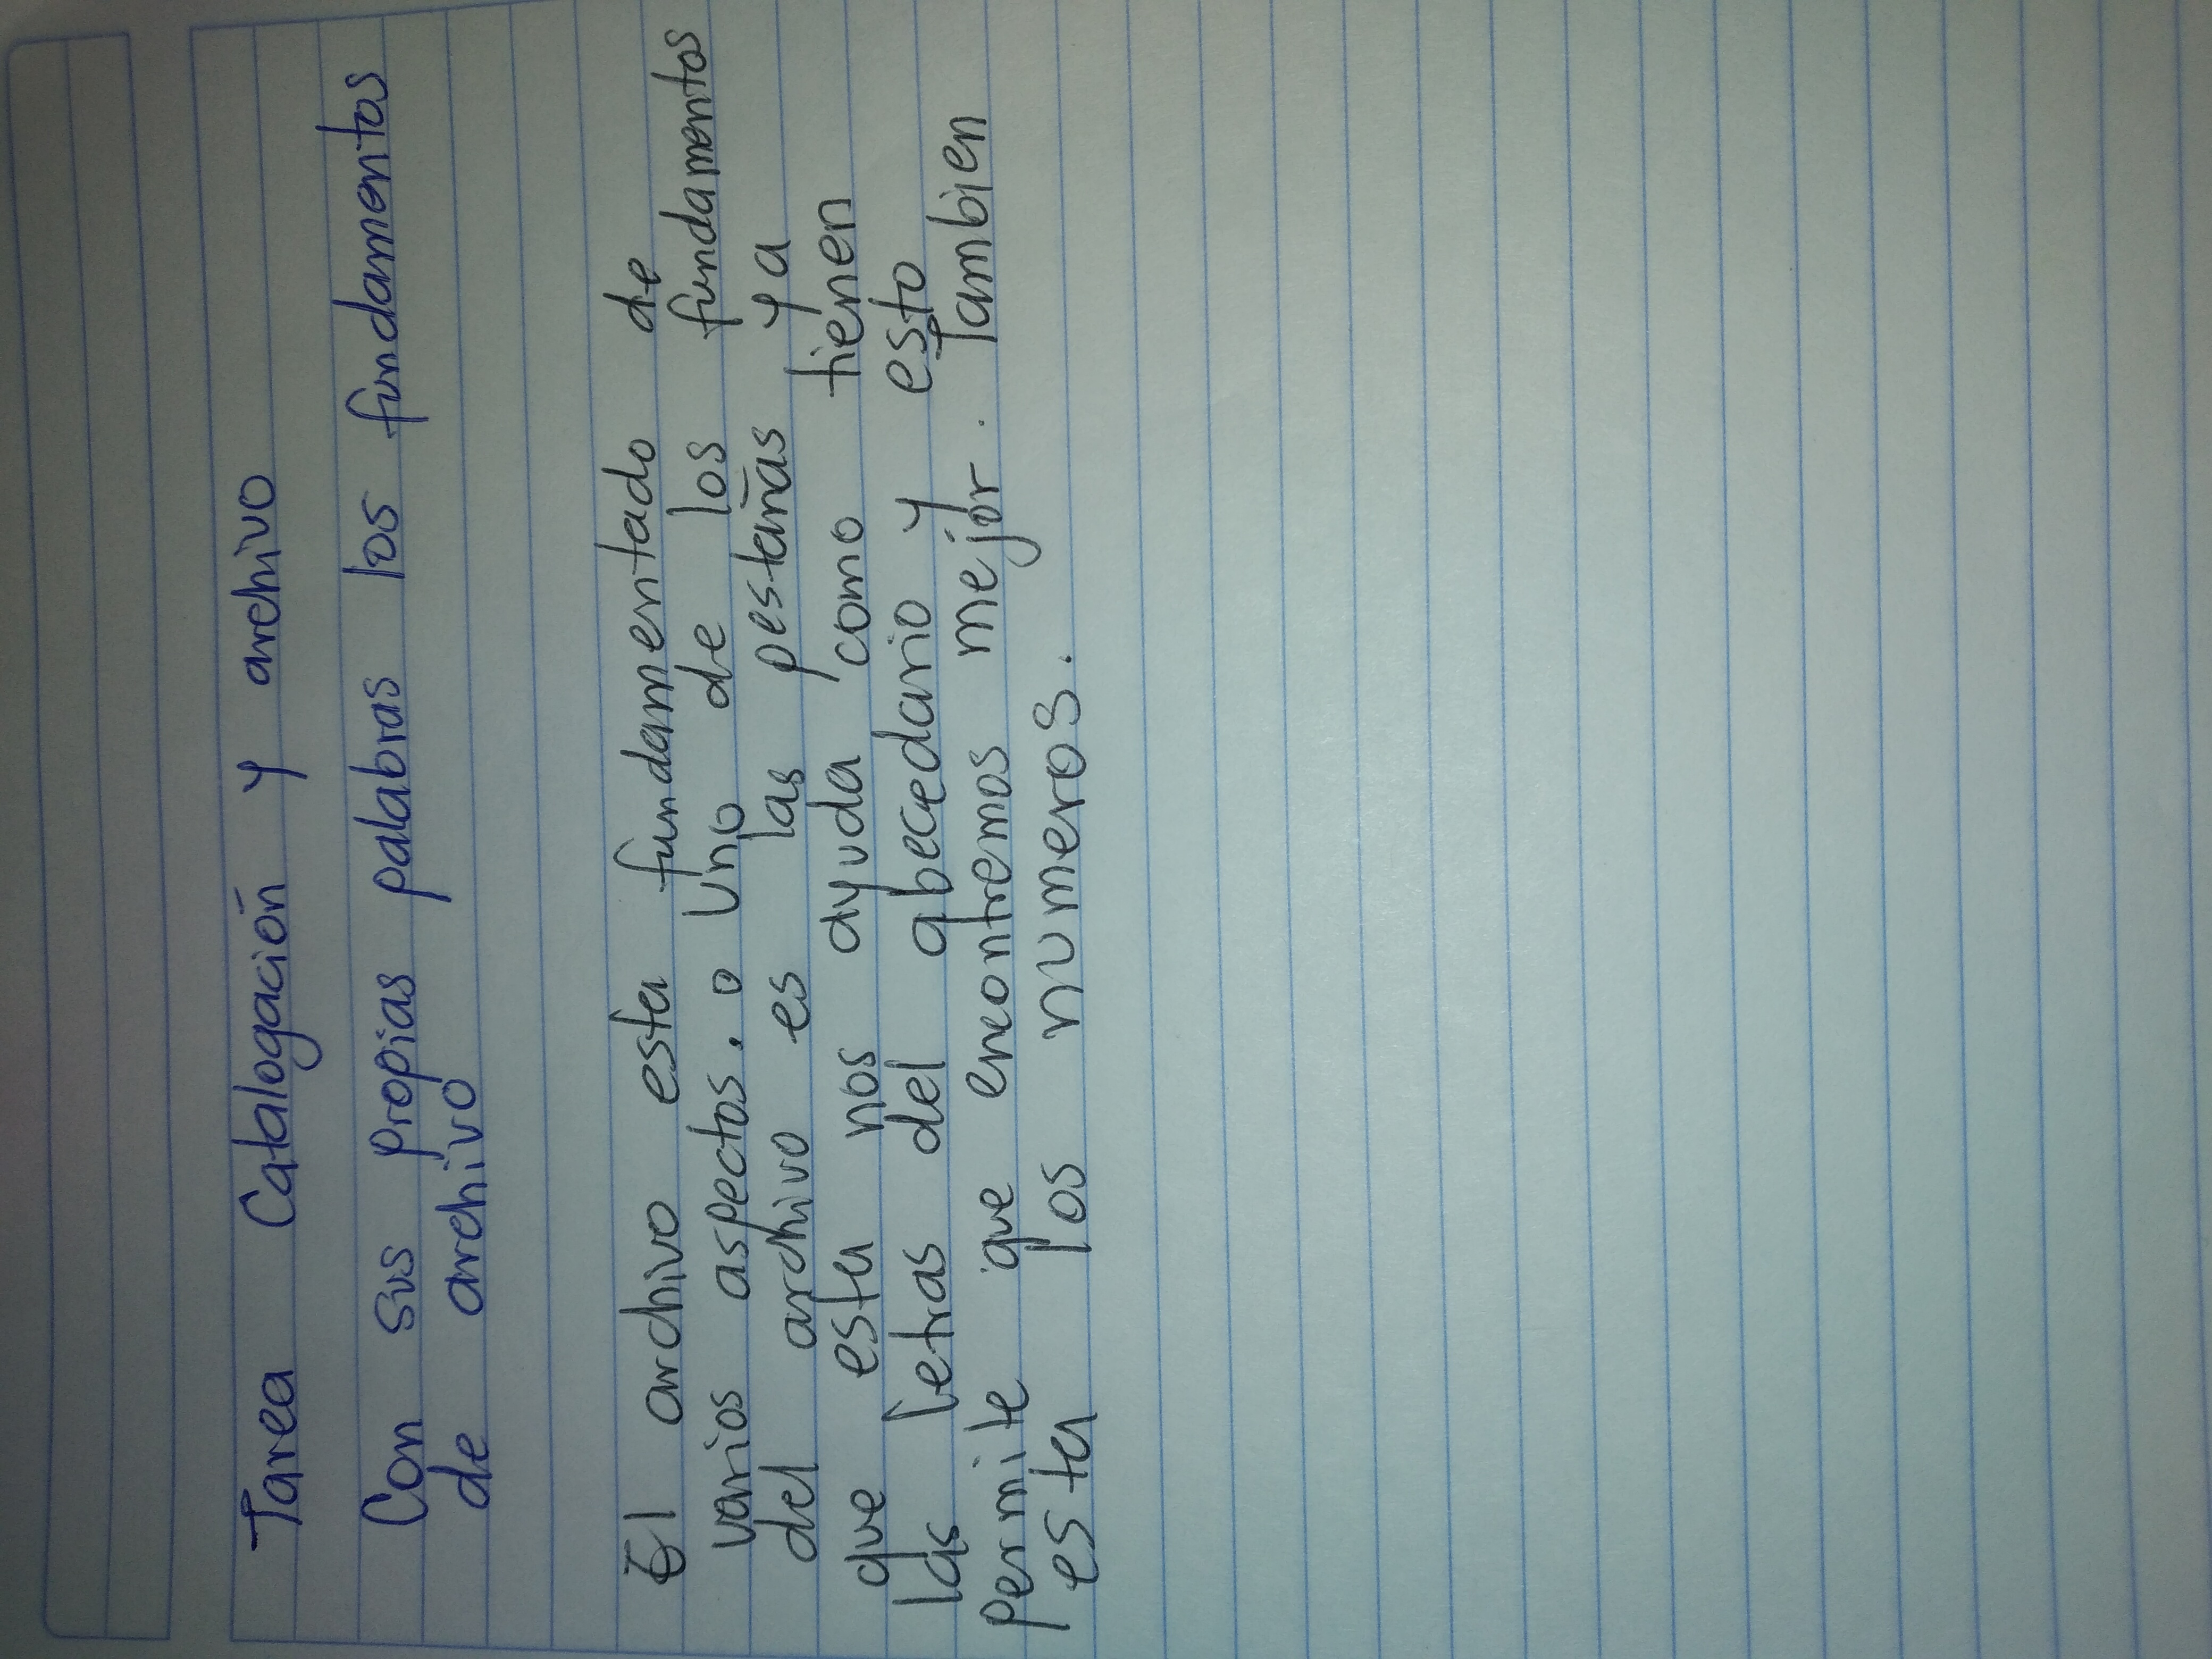 Tarea Catalogación y archivo
Con sus propias palabras los fundamentos
de archivo
El archivo esta fundamentado de
varios aspectos. o Uno de los fundamentos
del archivo es las pestañas ya
que esta nos ayuda como tienen
las letras del abecedario y esto
permite que encontremos mejor. Tambien
esta los numeros.